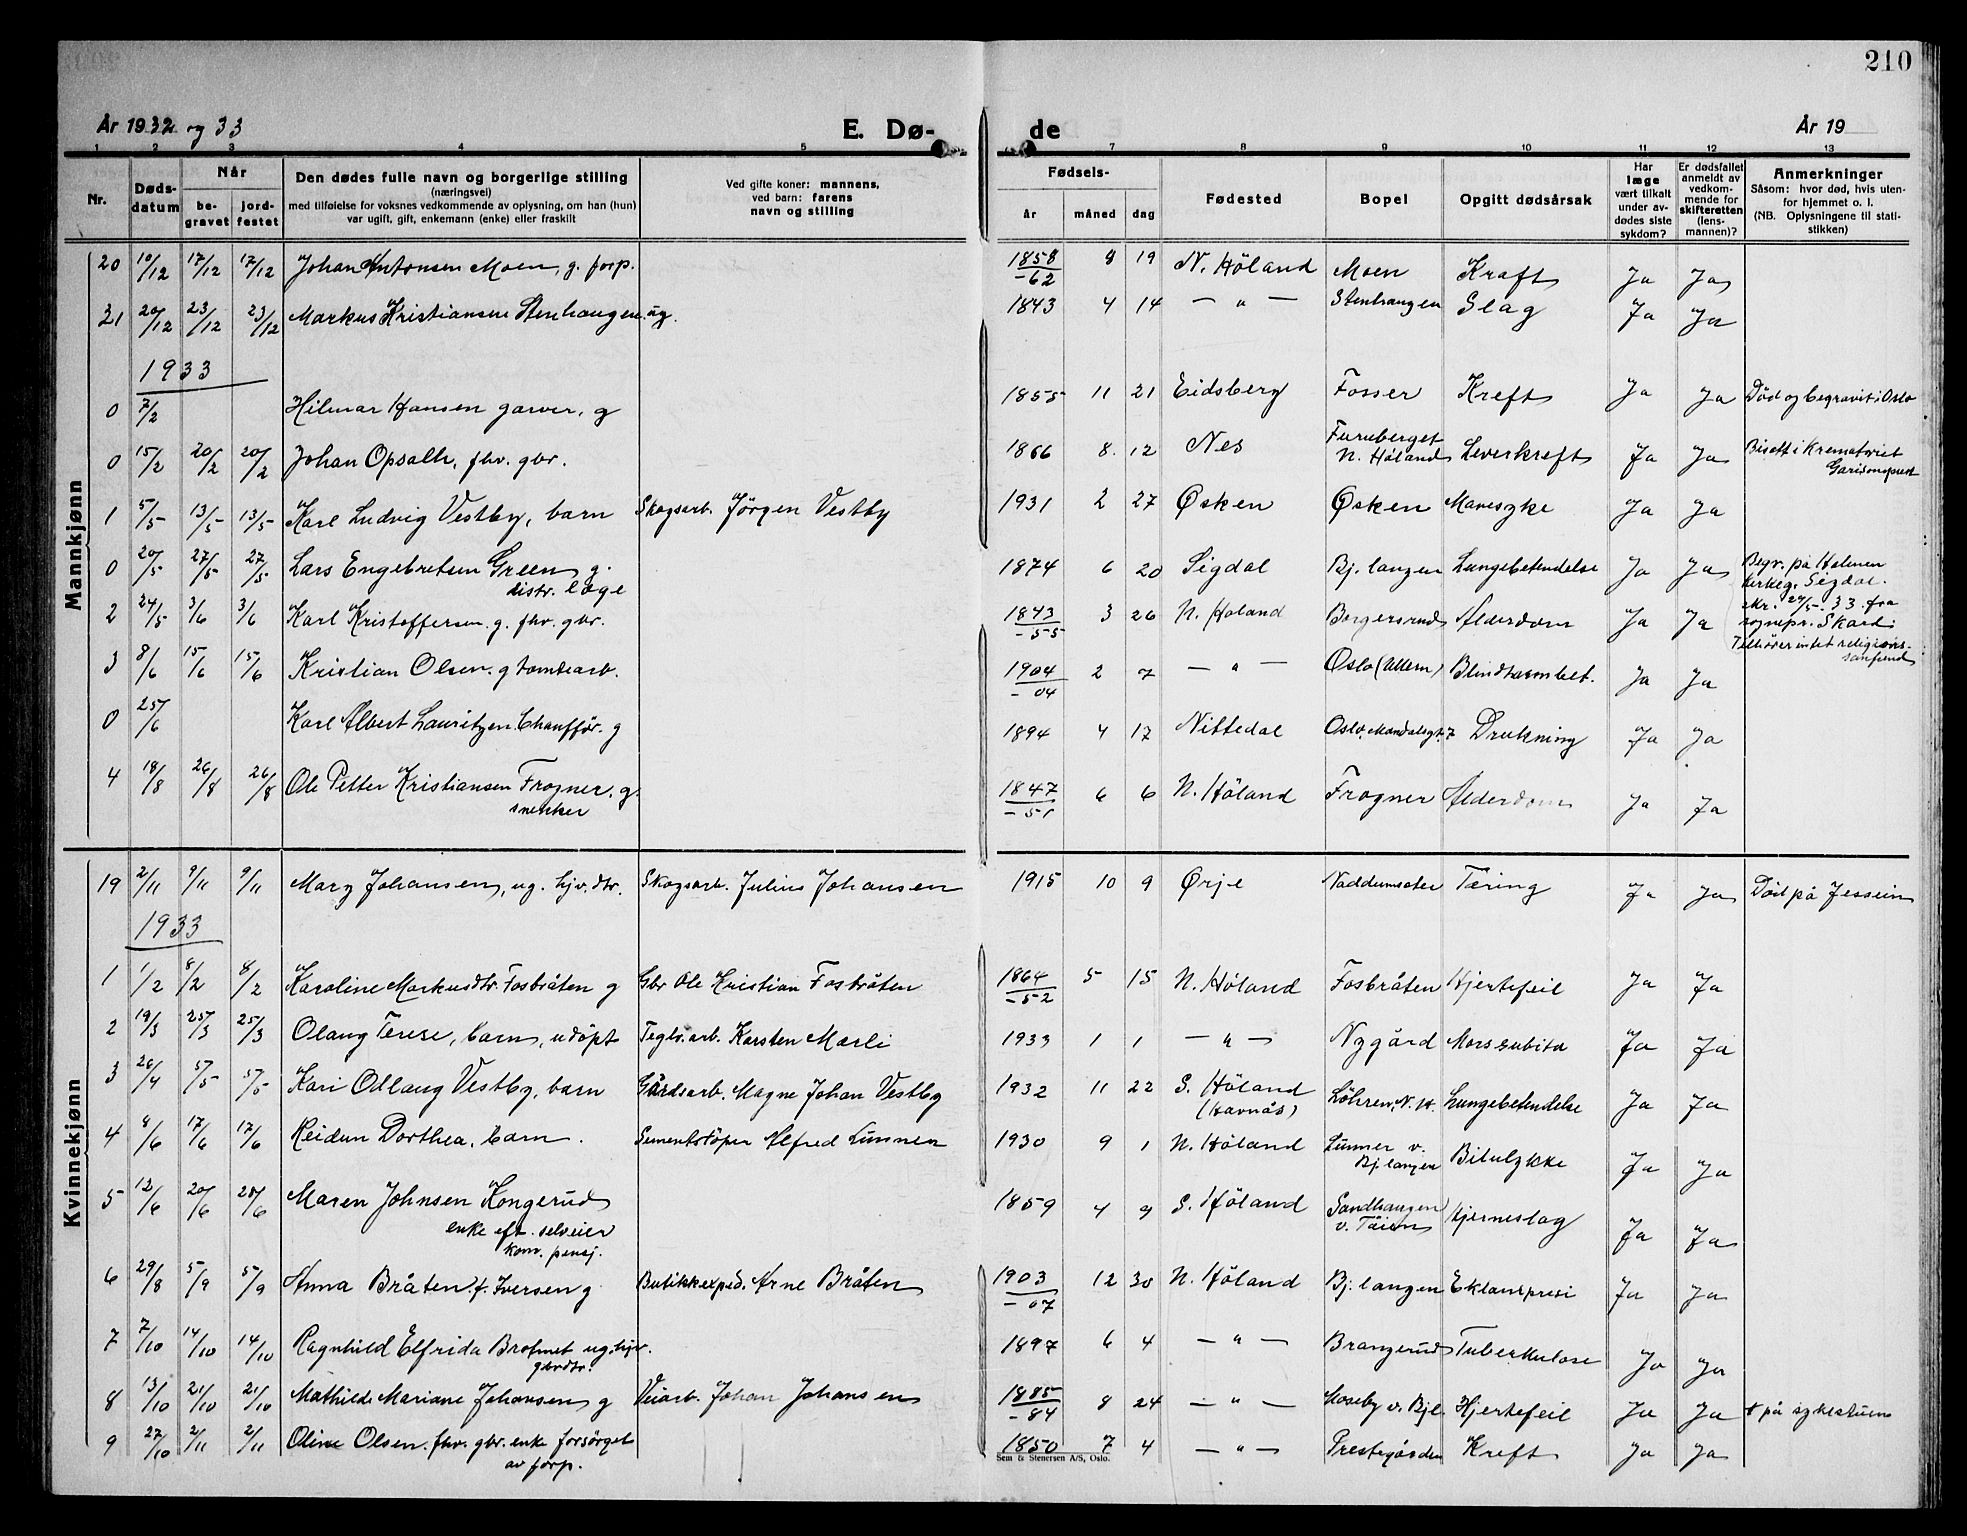 210
År 1932 og 33
E. Dø-
de
År 19
1 2 3 4 5 7 8 9 10 11 12 13
Nr.
Døds-
datum
Når
be-
gravet
jord-
festet
Den dødes fulle navn og borgerlige stilling
(næringsvei)
med tilføielse for voksnes vedkommende av oplysning, om han (hun)
var ugift, gift, enkemann (enke) eller fraskilt
Ved gifte koner: mannens,
ved barn: farens
navn og stilling
Fødsels-
år måned dag
Fødested
Bopel
Opgitt dødsårsak
Har
læge
vært tilkalt
under av-
dødes siste
sykdom?
Er dødsfallet
anmeldt av
vedkom-
mende for
skifteretten
(lens-
mannen)?
Anmerkninger
Såsom: hvor død, hvis uten-
for hjemmet o. l.
(NB. Oplysningene til stati-
stikken)
Mannkjønn
20 10/12 17/12 17/12 Johan Antonsen Moen, g. forp. 1858 8 19 N. Höland Moen Kræft Ja Ja
-62
21 20/12 23/12 23/12 Markus Kristiansen Stenhaugen. ug. 1843 4 14 — " — Stenhaugen Slag Ja Ja
1933
0 7/2 Hilmar Hansen garver, g 1855 11 21 Eidsberg Fosser Kreft Ja Ja Död og begravet i Oslo
0 15/2 20/2 20/2 Johan Opsahl, fhv. gbr. 1866 8. 12 Nes Furuberget Leverkreft Ja Ja Bisatt i Krematoriet
N. Höland
1 5/5 13/5 13/5 Karl Ludvig Vestby, barn Skogsarb. Jörgen Vestby 1931 2 27 Øsken Øsken Mavesyke Ja Ja
0 20/5 27/5 27/5 Lars Engebretsen Green g. 1874 6 20 Sigdal Bj.langen Lungebetendelse Ja Ja Begr. på Holmen
distr. læge kirkeg. Sigdal.
2 24/5 3/6 3/6 Karl Kristoffersen. g. fhv. gbr. 1843 3 26 N. Höland Borgersrud Alderdom Ja Ja skr. 24/5.33 fra
-55 sognepr. Skard i
3 8/6 15/6 15/6 Kristian Olsen. g tomtearb. 1904 2 7 — " — Oslo (Ullern) Blindtarmbet. Ja Ja Tilhører intet religiøst
-04 samfund
0 25/6 Karl Albert Lauritzen. Chauffør. g 1894 4 17 Nittedal Oslo, Mandalsgt. 7 Drukning Ja Ja
4 18/8 26/8 26/8 Ole Petter Kristiansen Frogner. g. 1847 6 6 N. Höland Frogner Alderdom Ja Ja
snekker -51
Kvinnekjønn
19 2/11 9/11 9/11 Mary Johansen, ug. hjv. dtr. Skogsarb. Julius Johansen 1915 10 9 Ørje Naddumsæter Tæring Ja Ja Död på Jessheim
1933
1 1/2 8/2 8/2 Karoline Markusdtr. Fosbråten g Gbr Ole Kristian Fosbråten 1864 5 15 N. Höland Fosbråten Hjertefeil Ja Ja
-52
2 19/3 25/3 25/3 Olaug Terese, barn, udöpt Teglv.arb. Karsten Mærli 1933 1 1 — " — Nygård Mors subita Ja Ja
3 26/4 5/5 5/5 Kari Odlaug Vestby, barn Gårdsarb. Magne Johan Vestby 1932 11 22 S. Höland Löhren, N. H. Lungebetendelse Ja Ja
(Havnås)
4 8/6 17/6 17/6 Reidun Dorthea, barn. Sementstöper Alfred Lunner 1930 9 1 N. Höland Lunner v. Bilulykke Ja Ja
Bj.langen
5 12/6 20/6 20/6 Maren Johnsen Kongerud 1859 4 9 S. Höland Sandhaugen Hjerneslag Ja Ja
enke eft. selveier v. Töien
kom. pensj.
6 29/8 5/9 5/9 Anna Bråten f. Iversen g Butikkexped. Arne Bråten 1903 12 30 N. Höland Bj.langen Eklampsi Ja Ja
-07
7 7/10 14/10 14/10 Ragnhild Elfrida ug. hjv. 1897 6 4 — " — Brangerud Tuberkulose Ja Ja
gbrdtr.
8 13/10 21/10 21/10 Mathilde Mariane Johansen g Veiarb. Johan Johansen 1885 8 24 — " — Moseby v. Bjl. Hjertefeil Ja Ja † på sykestuen
-84
9 27/10 2/11 2/11 Oline Olsen. fhv. gbr. enke forsörget 1850 7 4 — " — Prestegården Kreft Ja Ja
av forp.
Sem & Stenersen A/S, Oslo.